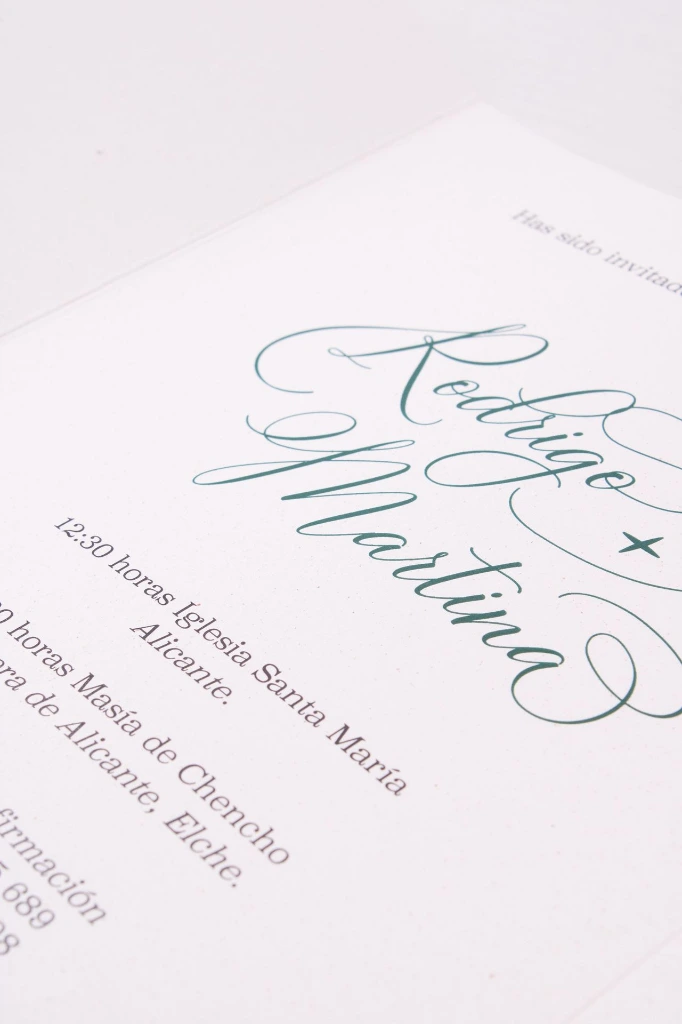 Has sido invitad
Rodrigo
+
Martina
12:30 horas Iglesia Santa María
Alicante.
horas Masía de Chencho
de Alicante, Elche.
689